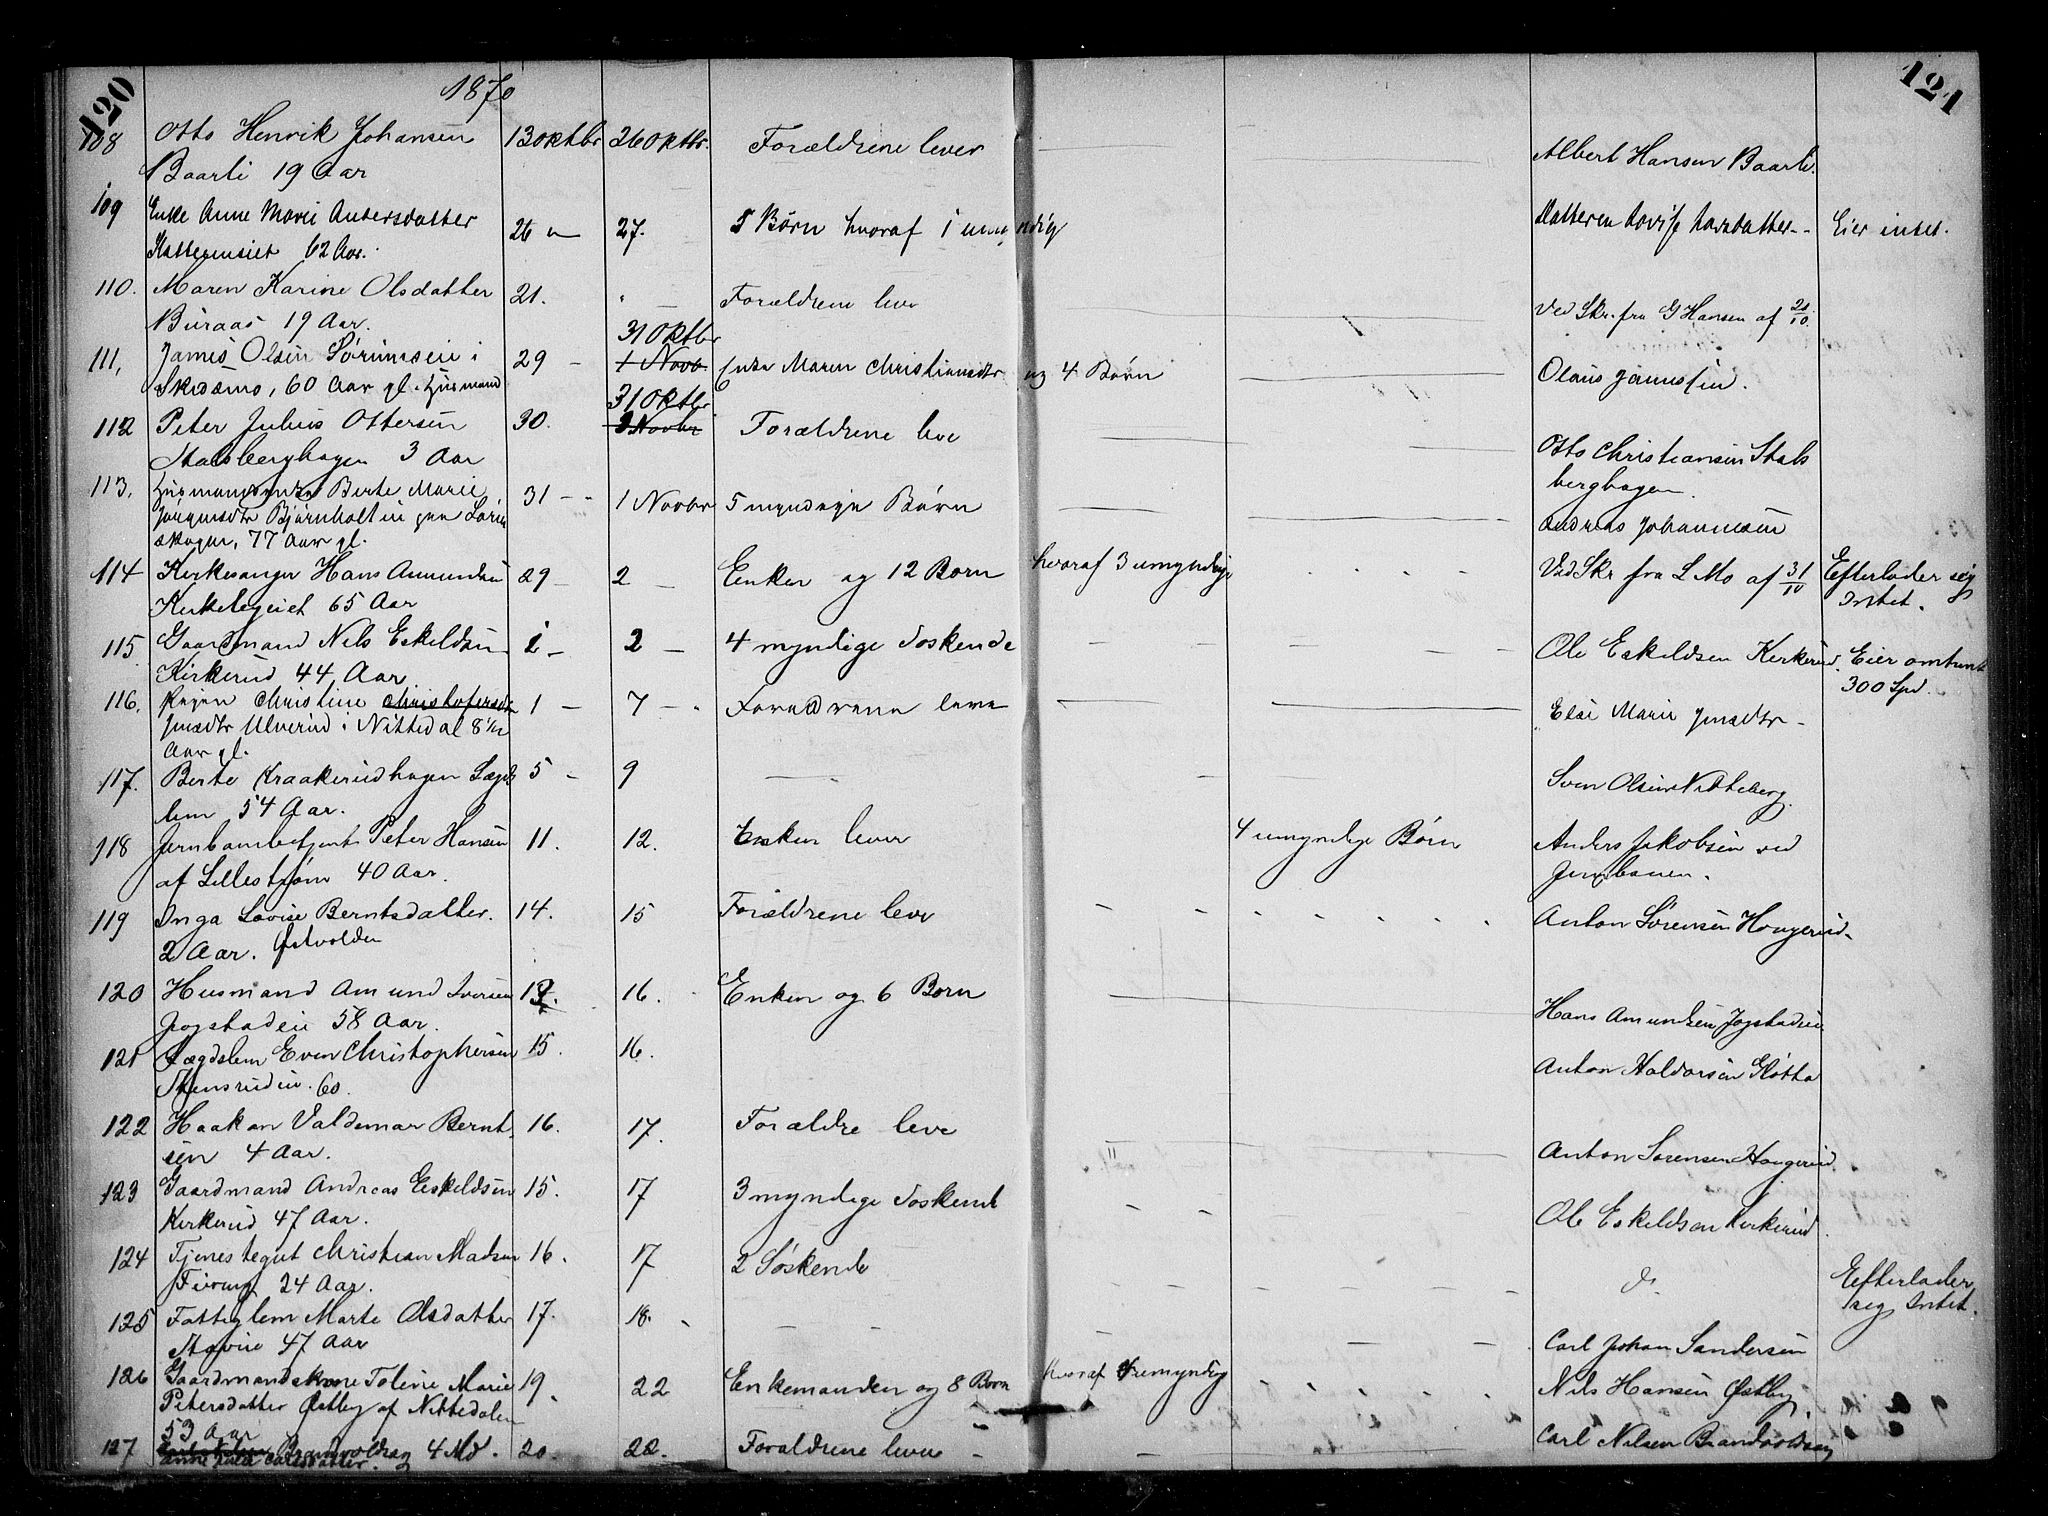 120
1870
121
108 Otto Henrik Johansen 13 oktbr 26 Oktbr. Forældrene lever Albert Hansen Baarli.
Baarli 19 Aar
109 Enke Anne Marie Andersdatter 26 27. 5 Børn hvoraf 1 umyndig Datteren Lovise Larsdatter Eier intet.
62 Aar.
110. Maren Karine Olsdatter 21. Forældrene leve Ved Skr. fra G Hansen af 21/10.
Buraas 19 Aar.
31 Oktbr
111. James Olsen Sørumseie i 29 - 1 Novb. Enke Maren Christiansdtr og 4 Børn Olaus Jamessen.
Skedsmo, 60 Aar gl. Husmand
31 Oktbr.
112 Peter Julius Ottersen 30. 2 Novbr Forældrene leve Otto Christiansen Stals
Stalsberghagen 3 Aar berghagen.
113. Husmandsenke Berte Marie 31 - 1 Novbr 5 myndige Børn Andreas Johannesen
Jørgensdtr Bjørnholteie paa Løren
skogen, 77 Aar gl.
114 Kirkesanger Hans Amundsen 29 - 2 - Enken og 12 Børn hvoraf 3 umyndige Ved Skr fra L Mo af 31/10 Efterlader sig
Kirkelegeiet 65 Aar Intet.
115 Gaardmand Nils Eskildsen 1 - 2 - 4 myndige Søskende Ole Eskildsen Kirkerud. Eier omtrent
Kirkerud 44 Aar 300 Spd.
116. Pigen Christine Christofersdtr 1 - 7 - Forældrene leve Else Marie Jensdtr -
Jensdtr Ulverud i Nittedal 8 1/2
Aar gl.
117. Berte Kraakerudhagen Lægds 5 - 9 Sven Olsen Nitteberg.
lem 54 Aar.
118 Jernbanebetjent Peter Hansen 11. 12. Enken lever 4 umyndige Børn Anders Jakobsen ved
af Lillestrøm 40 Aar. Jernbanen.
119 Inga Lovise Berntsdatter. 14. 15 Forældrene leve Anton Sørensen Haugerud.
2 Aar. Østvolden
120 Husmand Amund Iversen 16. Enken og 6 Børn Hans Amundsen Jogstadeie
Jogstadeie 58 Aar.
121 Lægdslem Even Christophersen 15. 16. Anton Haldorsen Gløtta
Stensrudeie. 60.
122 Haakon Valdemar Bernt 16. 17. Forældre leve Anton Sørensen Haugerud
sen 4 Aar.
123 Gaardmand Andreas Eskildsen 15. 17 3 myndige Søskende Ole Eskildsen Kirkerud.
Kirkerud 47 Aar.
124 Tjenestegut Christian Madsen 16. 17 2 Søskende do Efterlader
24 Aar. sig Intet.
125 Fattiglem Marte Olsdatter 17. 18. Carl Johan Sandersen
47 Aar
126 Gaardmandskone Toline Marie 19. 22 Enkemanden og 8 Børn hvoraf 4 umyndig Nils Hansen Østby
Petersdatter Østby af Nittedalen
53 Aar
127 Brandvoldsag 4 Md. 20. 22. Forældrene leve Carl Nilsen Brandvoldsag
Carlsdatter.